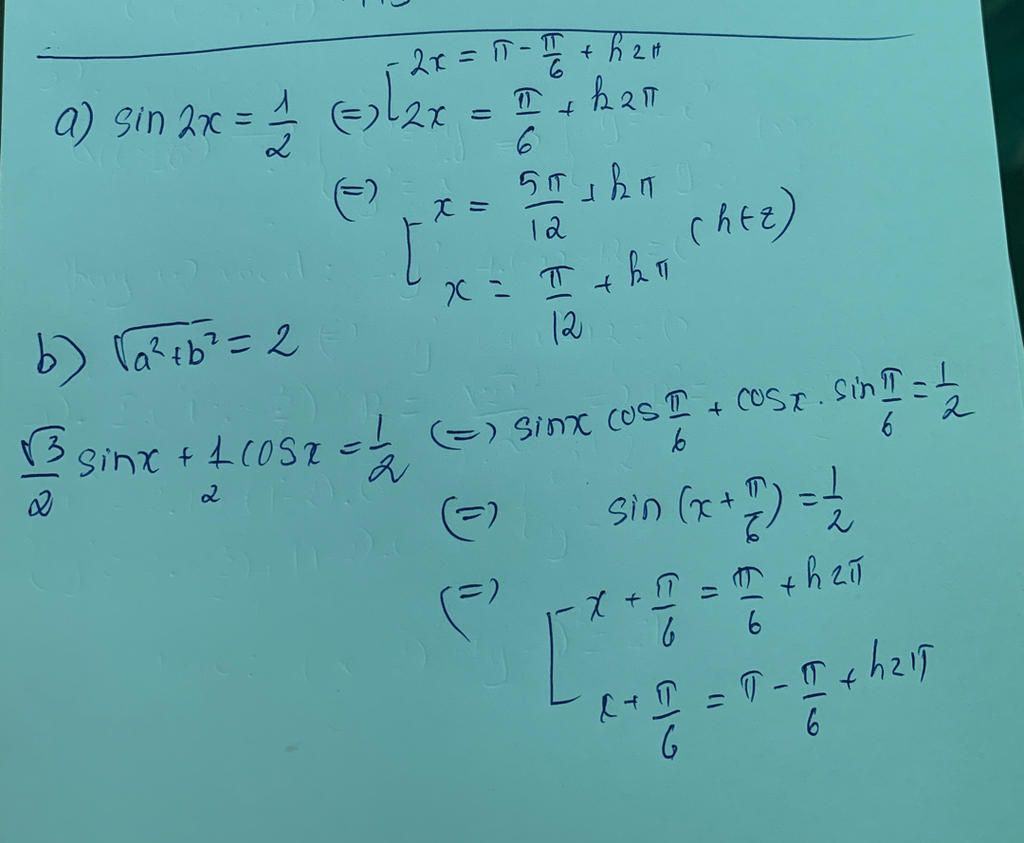 2x = π - π/6 + k2π
a) sin 2x = 1/2 (=) [ 2x = π/6 + k2π
(=) [ x = 5π/12 + kπ
x = π/12 + kπ (k ∈ Z)
b) √(a²+b²) = 2
√3/2 sinx + 1/2 cosx = 1/2 (=) sinx cos π/6 + cosx . sin π/6 = 1/2
(=) sin (x + π/6) = 1/2
(=) [ x + π/6 = π/6 + k2π
x + π/6 = π - π/6 + k2π